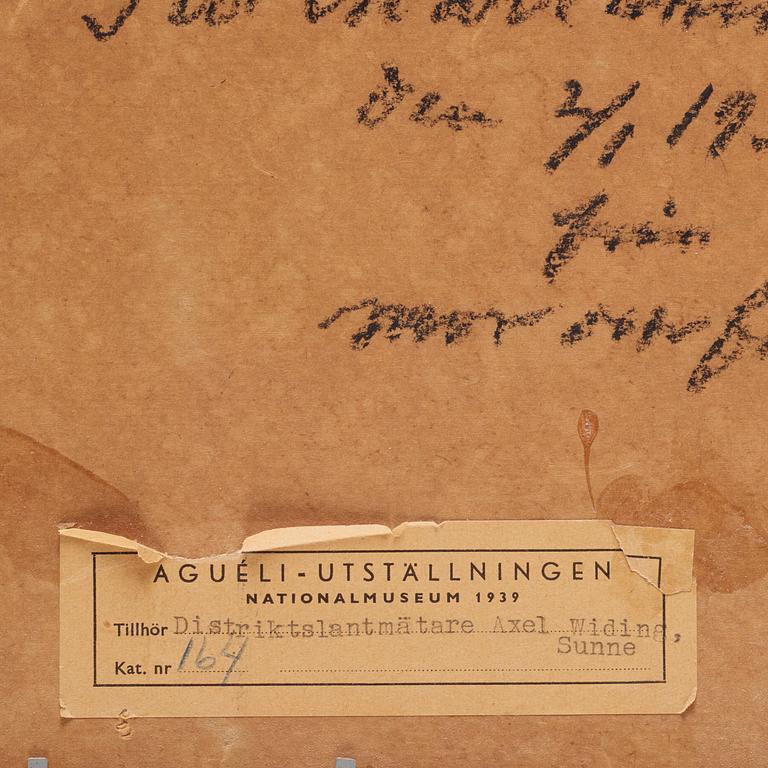 den 2/1 19
från
mor och
AGUÉLI-UTSTÄLLNINGEN
NATIONALMUSEUM 1939
Tillhör Distriktslantmätare Axel Widing,
Sunne
Kat. nr 164